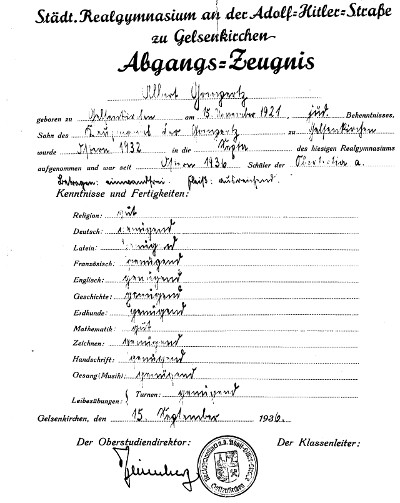 Städt. Realgymnasium an der Adolf=Hitler=Straße
zu Gelsenkirchen
Abgangs=Zeugnis
Albert Gompertz
geboren zu Gelsenkirchen am November 1921, jüd. Bekenntnisses,
Sohn des Kaufmanns Leo Gompertz zu Gelsenkirchen
wurde Ostern 1932 in die Sexta des hiesigen Realgymnasiums
aufgenommen und war seit Ostern 1936 Schüler der Obertertia a.
Betragen: einwandfrei. Fleiß: ausreichend.
Kenntnisse und Fertigkeiten:
Religion: gut
Deutsch: genügend
Latein: genügend
Französisch: genügend
Englisch: genügend
Geschichte: genügend
Erdkunde: genügend
Mathematik: gut
Zeichnen: genügend
Handschrift: genügend
Gesang (Musik): genügend
Leibesübungen: { Turnen: genügend
Gelsenkirchen, den 15. September 1936.
Der Oberstudiendirektor: Der Klassenleiter: